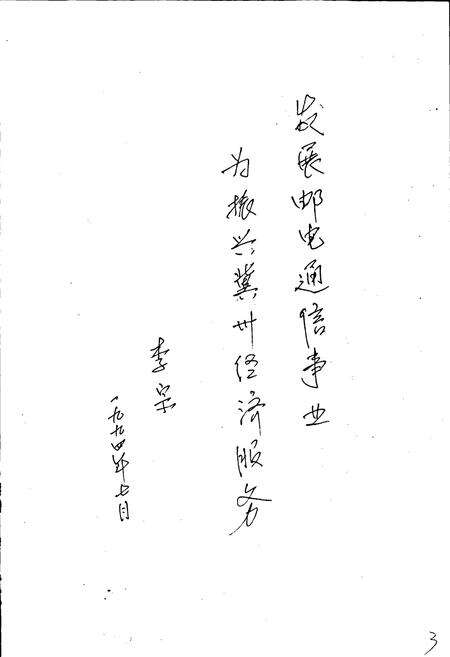 发展邮电通信事业
为振兴冀州经济服务
李宗
一九九四年七月
3